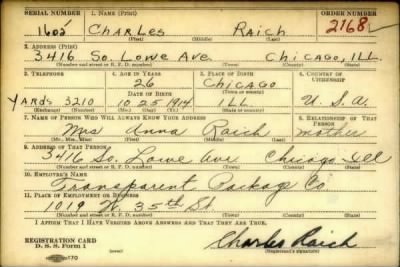 SERIAL NUMBER 1. NAME (Print) ORDER NUMBER
1605 CHARLES RAICH 2168
(First) (Middle) (Last)
2. ADDRESS (Print)
3416 So. Lowe Ave. Chicago, ILL.
(Number and street or R. F. D. number) (Town) (County) (State)
3. TELEPHONE 4. AGE IN YEARS 5. PLACE OF BIRTH 6. COUNTRY OF CITIZENSHIP
26 Chicago
DATE OF BIRTH (Town or county)
Yards 3210 10 25 1914 ILL U. S. A.
(Exchange) (No.) (Mo.) (Day) (Yr.) (State or country)
7. NAME OF PERSON WHO WILL ALWAYS KNOW YOUR ADDRESS 8. RELATIONSHIP OF THAT PERSON
Mrs Anna Raich mother
(Mr., Mrs., Miss) (First) (Middle) (Last)
9. ADDRESS OF THAT PERSON
3416 So. Lowe Ave Chicago Ill
(Number and street or R. F. D. number) (Town) (County) (State)
10. EMPLOYER'S NAME
Transparent Package Co
11. PLACE OF EMPLOYMENT OR BUSINESS
1019 W. 35th St
(Number and street or R. F. D. number) (Town) (County) (State)
I AFFIRM THAT I HAVE VERIFIED ABOVE ANSWERS AND THAT THEY ARE TRUE.
REGISTRATION CARD
D. S. S. Form 1 Charles Raich
(Registrant's signature)